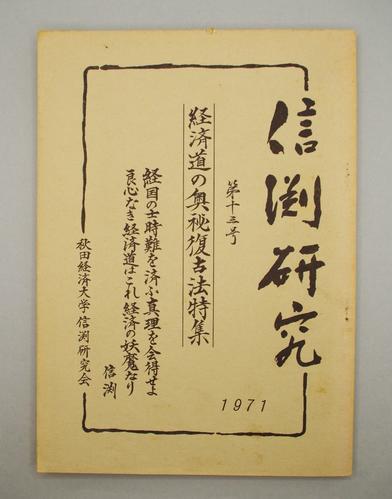 信渕研究
第十三号
経済道の奥秘復古法特集
経国の士時難を済ふ真理を会得せよ
良心なき経済道はこれ経済の妖魔なり
信渕
秋田経済大学信渕研究会
1971